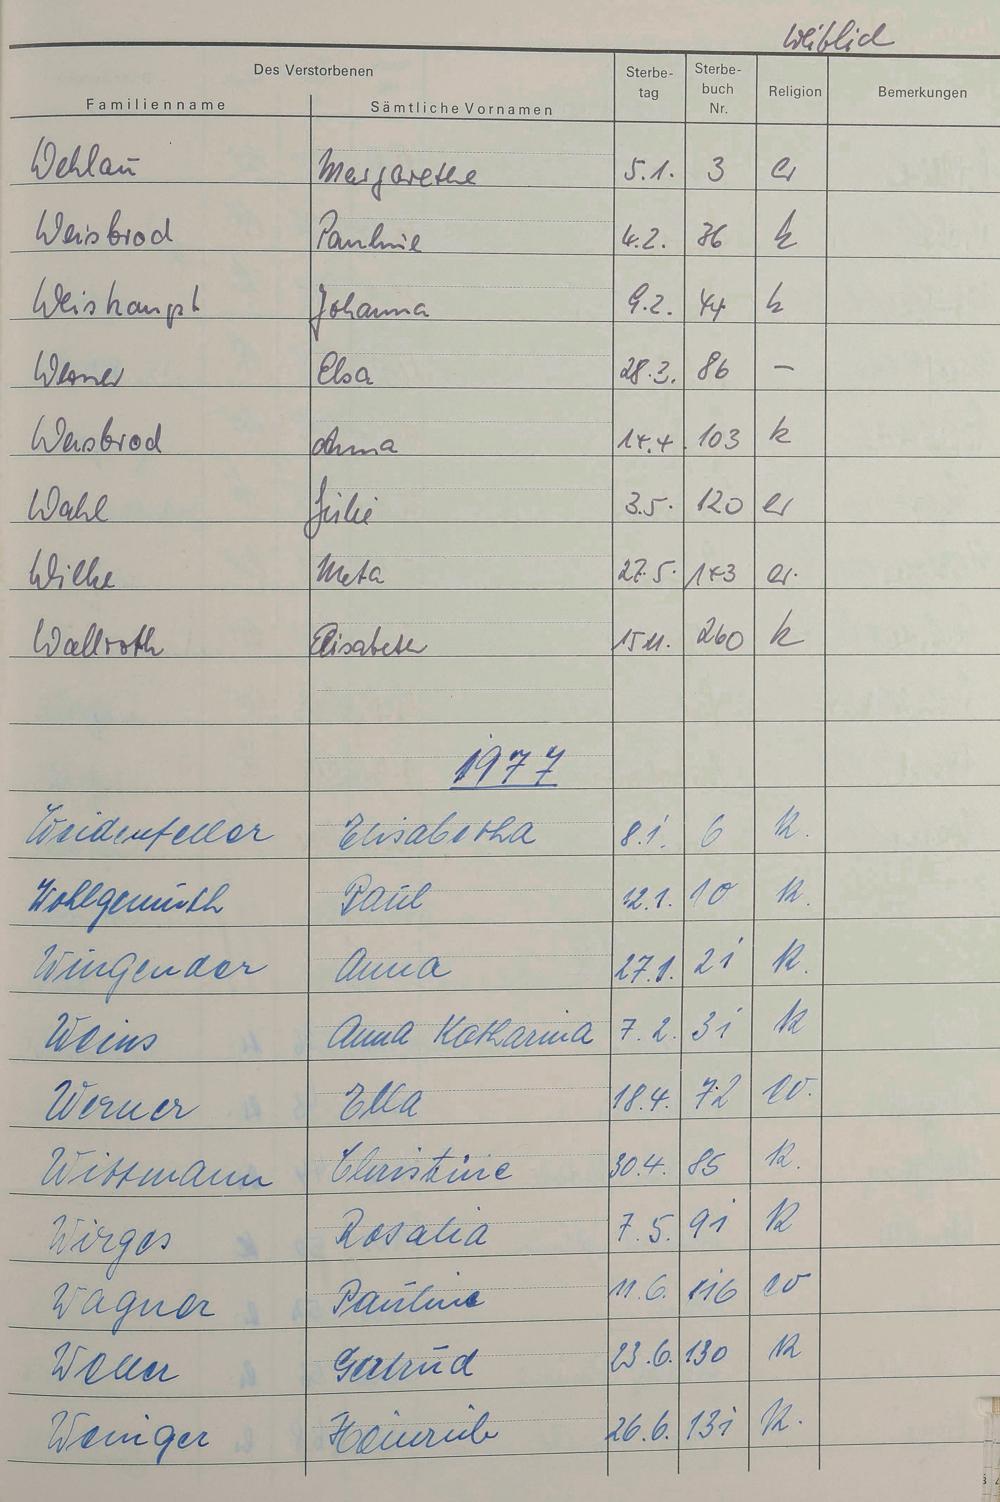 Weiblich
Des Verstorbenen Sterbe- Sterbe-
tag buch Religion Bemerkungen
Familienname Sämtliche Vornamen Nr.
Wehlau Margarethe 5.1. 3 ev
Weisbrod Pauline 4.2. 36 k
Weishaupt Johanna 9.2. 44 k
Werner Elsa 28.3. 86 –
Weisbrod Anna 14.4. 103 k
Wahl Julie 3.5. 120 ev
Wilke Meta 27.5. 143 ev.
Wallroth Elisabeth 15.11. 260 k
1977
Weidenfeller Elisabetha 8.1. 6 k.
Wohlgemuth Paul 12.1. 10 k.
Wingender Anna 27.1. 21 k.
Weins Anna Katharina 7.2. 31 k
Werner Etta 18.4. 72 ev.
Wittmann Christine 30.4. 85 k.
Wirges Rosalia 7.5. 91 k
Wagner Pauline 11.6. 116 ev
Weller Gertrud 23.6. 130 k
Weniger Heinrich 26.6. 131 k.